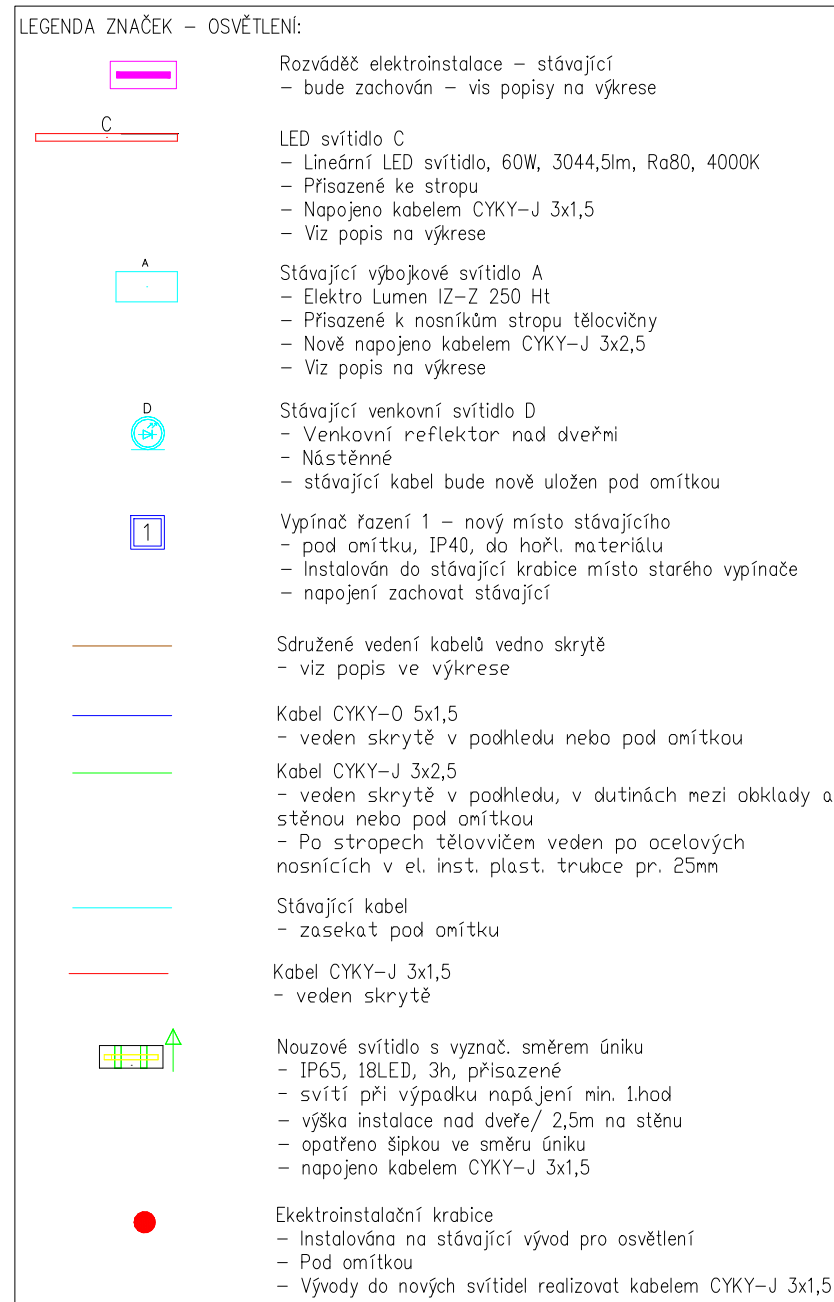 LEGENDA ZNAČEK – OSVĚTLENÍ:
Rozváděč elektroinstalace – stávající
– bude zachován – vis popisy na výkrese
C
LED svítidlo C
– Lineární LED svítidlo, 60W, 3044,5lm, Ra80, 4000K
– Přisazené ke stropu
– Napojeno kabelem CYKY–J 3x1,5
– Viz popis na výkrese
A
Stávající výbojkové svítidlo A
– Elektro Lumen IZ–Z 250 Ht
– Přisazené k nosníkům stropu tělocvičny
– Nově napojeno kabelem CYKY–J 3x2,5
– Viz popis na výkrese
D
Stávající venkovní svítidlo D
- Venkovní reflektor nad dveřmi
- Nástěnné
– stávající kabel bude nově uložen pod omítkou
1
Vypínač řazení 1 – nový místo stávajícího
- pod omítku, IP40, do hořl. materiálu
– Instalován do stávající krabice místo starého vypínače
– napojení zachovat stávající
Sdružené vedení kabelů vedno skrytě
- viz popis ve výkrese
Kabel CYKY–O 5x1,5
- veden skrytě v podhledu nebo pod omítkou
Kabel CYKY–J 3x2,5
- veden skrytě v podhledu, v dutinách mezi obklady a
stěnou nebo pod omítkou
- Po stropech tělovvičem veden po ocelových
nosnících v el. inst. plast. trubce pr. 25mm
Stávající kabel
- zasekat pod omítku
Kabel CYKY–J 3x1,5
- veden skrytě
Nouzové svítidlo s vyznač. směrem úniku
- IP65, 18LED, 3h, přisazené
- svítí při výpadku napájení min. 1.hod
– výška instalace nad dveře/ 2,5m na stěnu
– opatřeno šipkou ve směru úniku
– napojeno kabelem CYKY–J 3x1,5
Ekektroinstalační krabice
– Instalována na stávající vývod pro osvětlení
– Pod omítkou
– Vývody do nových svítidel realizovat kabelem CYKY–J 3x1,5